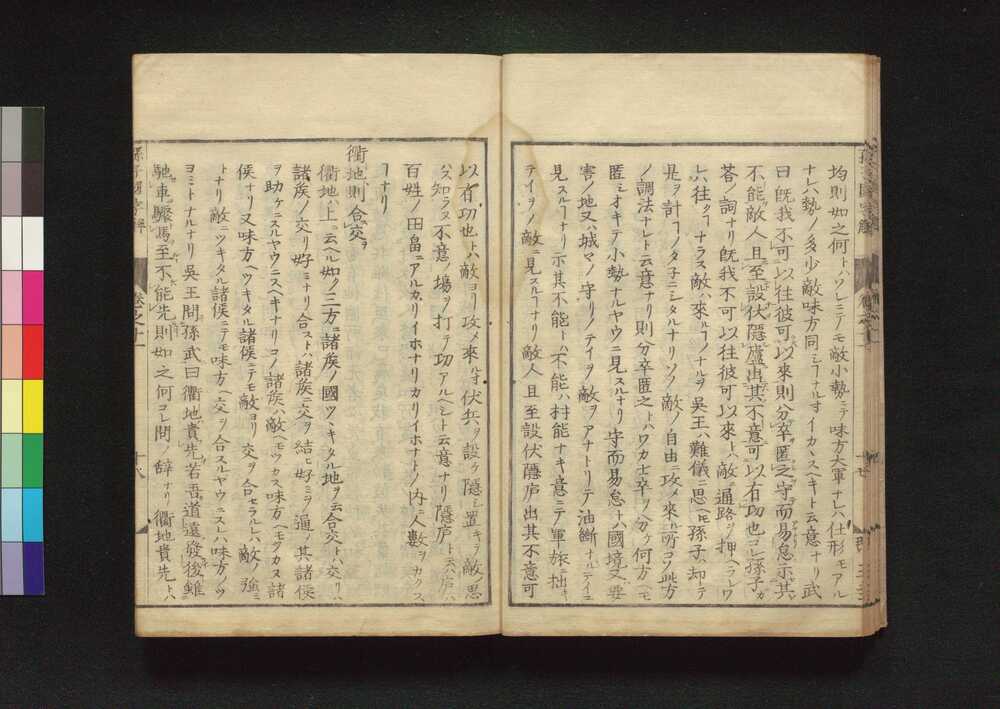 均則如之何トハソレニテモ敵小勢ニテ味方大軍ナレハ仕形モアル
ナレハ勢ノ多少敵味方同シヿナルオイカヽスヘキト云意ナリ武
曰既我不可以往彼可以來則分卒匿之守而易怠示其
不能敵人且至設伏隱廬出其不意可以有功也コレ孫子カ
答ノ詞ナリ既我不可以往彼可以來トハ敵ニ通路ヲ押ヘラレワ
レハ往クヿナラス敵ハ來ルヿノナルヲ吳王ハ難儀ニ思ヘトモ孫子ハ却テ
是ヲ計ヿノタ子ニシタルナリソノ敵ノ自由ニ攻メ來ル所コソ此方
ノ調法ナレト云意ナリ則分卒匿之トハワカ士卒ヲ分ケ何方ニモ
匿シオキテ小勢ナルヤウニ見スルナリ守而易怠トハ國境又要
害ノ地又ハ城マノ守リノテイヲ敵ヲアナトリテ油斷ナルテイニ
見スルヿナリ示其不能トハ不能ハ材能ナキ意ニテ軍旅ニ拙キ
テイヲノ敵ニ見スルヿナリ敵人且至設伏隱庐出其不意可
以有功也トハ敵ヨリ攻メ來ル時伏兵ヲ設ケ隱シ置キヲ敵ノ思
ハス知ラヌ不意ノ塲ヲ打テ功アルヘシト云意ナリ隱庐ト云ハ庐ハ
百姓ノ田畠ニアルカリイホナリカリイホナトノ内ニ人數ヲカクス
ヿナリ
衢地則合交ヲ
衢地ハ上ニ云ヘル如ク三方ニ諸矦ノ國ツヽキタル地ヲ云合交トハ交リハ
諸矦ノ交リ好ミナリ合ストハ諸矦ニ交ヲ結ヒ好ミヲ通ノ其諸侯
ヲ助ケニスルヤウニスヘキナリコノ諸矦ハ敵ヘモツカス味方ヘモツカヌ諸
侯ナリ又味方ヘツキタル諸侯ニテモ敵ヨリ交ヲ合セラルレハ敵ノ強ミ
トナリ敵ニツキタル諸侯ニテモ味方ヘ交ヲ合スルヤウニスレハ味方ノツ
ヨミトナルナリ吳王問孫武曰衢地貴先若吾道遠發後雖
馳車驟馬至不能先則如之何コレ問ノ辞ナリ衢地貴先トハ